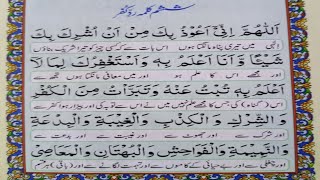 ششم کلمہ ردّ کفر
اَللّٰهُمَّ اِنِّیْٓ اَعُوْذُ بِكَ مِنْ اَنْ اُشْرِكَ بِكَ
الٰہی میں تیری پناہ مانگتا ہوں اس بات سے کہ کسی چیز کو تیرا شریک بناؤں
شَیْئًا وَّاَنَا اَعْلَمُ بِهٖ وَاَسْتَغْفِرُكَ لِمَا لَآ
اور مجھے اس کا علم ہو اور میں معافی مانگتا ہوں تجھ سے
اَعْلَمُ بِهٖ تُبْتُ عَنْهُ وَتَبَرَّأْتُ مِنَ الْكُفْرِ
اس (گناہ) کی جس کا مجھے علم نہیں میں نے اس سے توبہ کی اور بیزار ہوا کفر سے
وَالشِّرْكِ وَالْكِذْبِ وَالْغِیْبَةِ وَالْبِدْعَةِ
اور شرک سے اور جھوٹ سے اور غیبت سے اور بدعت سے
وَالنَّمِیْمَةِ وَالْفَوَاحِشِ وَالْبُهْتَانِ وَالْمَعَاصِیْ
اور چغلی سے اور بے حیائی کے کاموں سے اور تہمت لگانے سے اور (باقی) ہر قسم